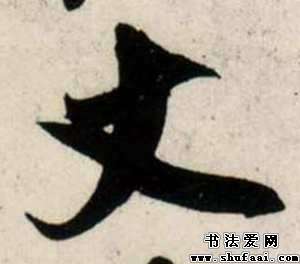 丈
书法爱网
www.shufaai.com